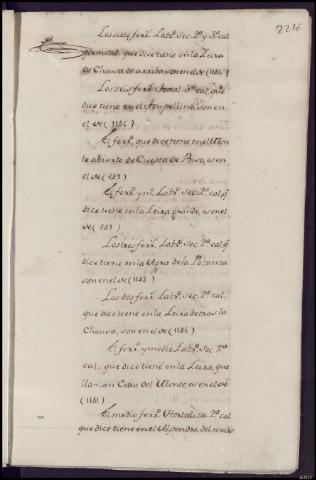 2216
Los siete ferr.s Labr.º Sec. 2ª y 3ª cal.
por mitad, que dice tiene en la Leira
de Chousa de arriba, son en el de (1186)
Los seis ferr.s 3ª cal, que
dice tiene en el son en
el de (1186)
El ferr.º, que dice tiene en el Mon
te abierto de Cuesta de es en
el de (543)
El ferr.º y m.º Labr.º Sec. 2ª cal. q.e
dice tiene en la Leira grande, es en el
de (543)
Los tres ferr.s Labr.º Sec. 2ª cal. q.e
dice tiene en la de la
son en el de (1142)
Los dos ferr.s Labr.º Sec. 2ª cal,
que dice tiene en la Leira detras la
Chousa, son en el de (1186)
El ferr.º y medio Labr.º Sec. 2ª
cal, que dice tiene en la Leira, que
llaman del Monte, es en el de
(1181)
El medio ferr.º Hortaliza 2ª cal
que dice tiene en el Alpendre del medio